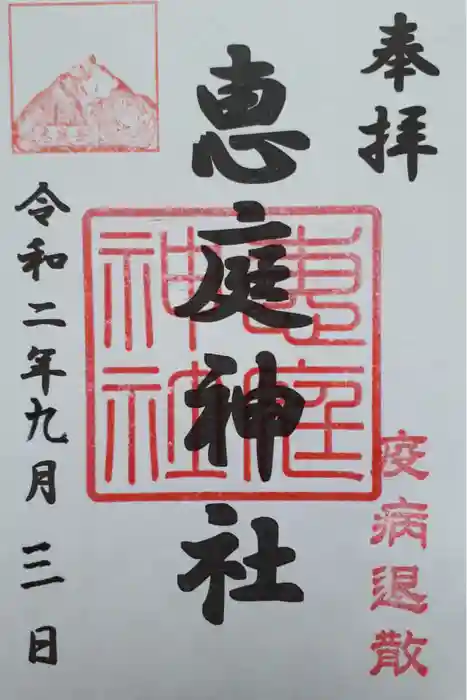 奉拝
疫病退散
恵庭神社
恵庭神社
令和二年九月三日